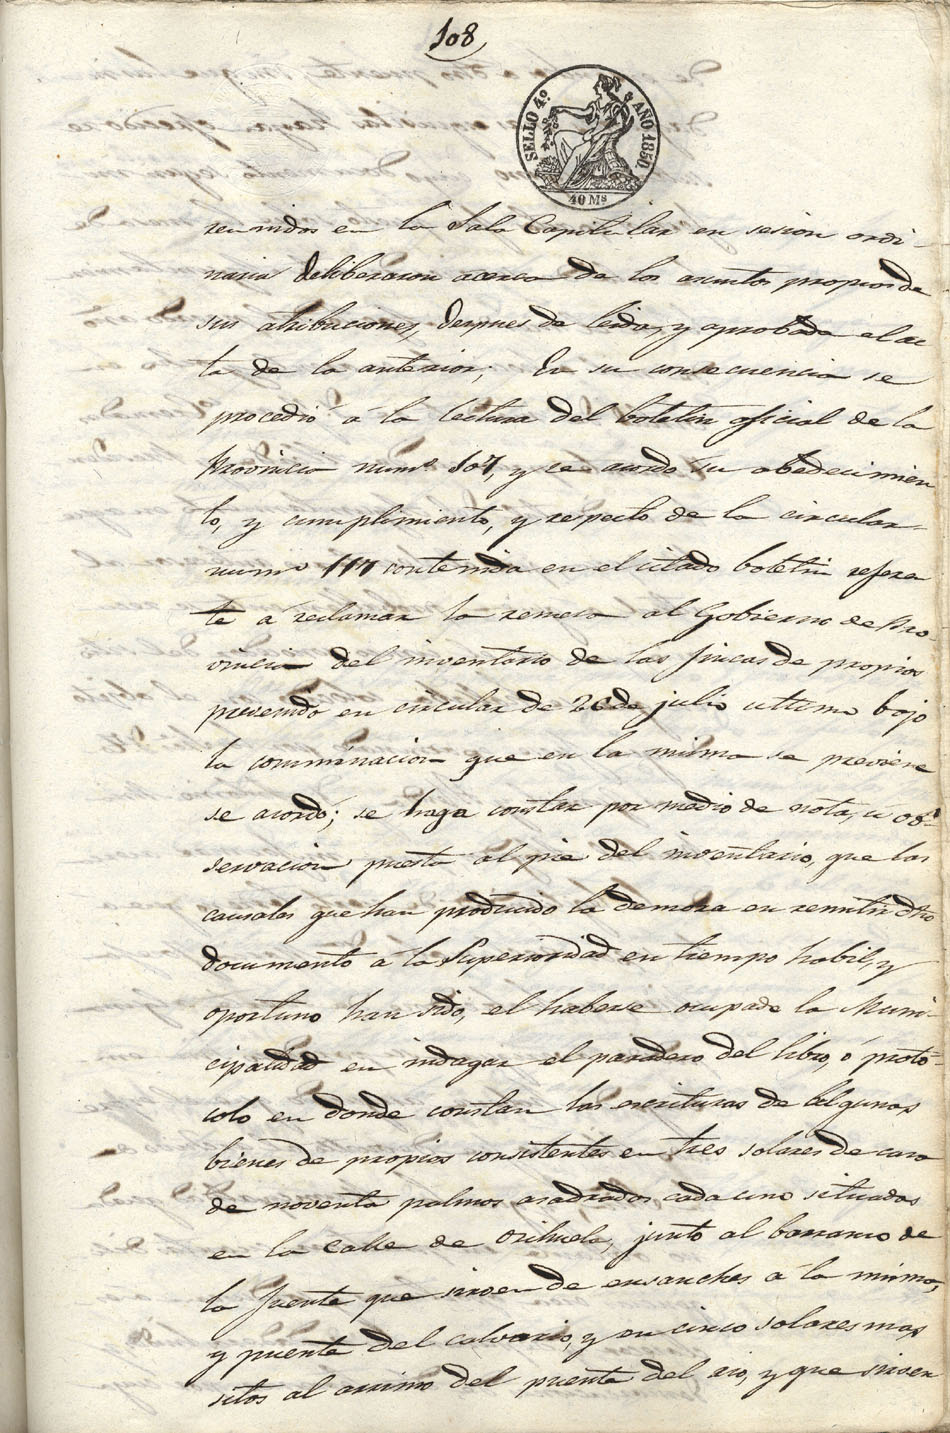 108
SELLO 4º AÑO 1850.
40 Ms
reunidos en la Sala Capitular en sesion ordi-
naria deliberaron acerca de los asuntos propios de
sus atribuciones, despues de leida, y aprobada el ac
ta de la anterior; En su consecuencia se
procedió á la lectura del boletin oficial de la
Provincia numº 107, y se acordó su obedecimien
to, y cumplimiento, y respecto de la circular
numº 117 contenida en el citado boletin referen
te á reclamar la remesa al Gobierno de Pro
vincia del inventario de las fincas de propios
prevenido en circular de 26 de julio ultimo bajo
la conminacion que en la misma se previene
se acordó; se haga constar por medio de nota, ú ob-
servacion puesta al pie del inventario, que las
causales que han producido la demora en remitir dho
documento á la Superioridad en tiempo habil, y
oportuno han sido, el haberse ocupado la Muni-
cipalidad en indagar el paradero del libro, ó proto-
colo en donde constan las escrituras de algunos
bienes de propios consistentes en tres solares de casa
de noventa palmos cuadrados cada uno situados
en la calle de Orihuela, junto al barranco de
la fuente que sirven de ensanches á la misma,
y puente del calvario, y en cinco solares mas
sitos al arrimo del puente del rio, y que sirven